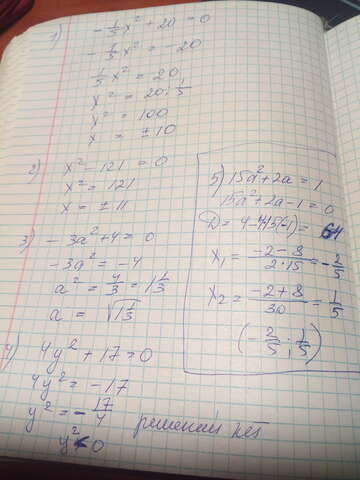 1) -1/5x² + 20 = 0
-1/5x² = -20
1/5x² = 20
x² = 20 : 1/5
x² = 100
x = ±10
2) x² - 121 = 0
x² = 121
x = ±11
3) -3a² + 4 = 0
-3a² = -4
a² = 4/3 = 1 1/3
a = √(1 1/3)
4) 4y² + 17 = 0
4y² = -17
y² = -17/4
y² < 0 решений нет
5) 15a² + 2a = 1
15a² + 2a - 1 = 0
D = 4 - 4·15(-1) = 64
x₁ = (-2 - 8)/(2·15) = -2/5
x₂ = (-2 + 8)/30 = 1/5
(-2/5 ; 1/5)